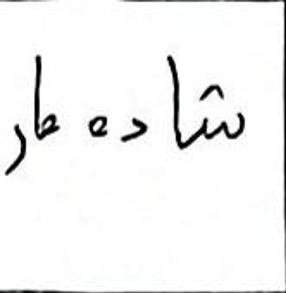 شاده طر